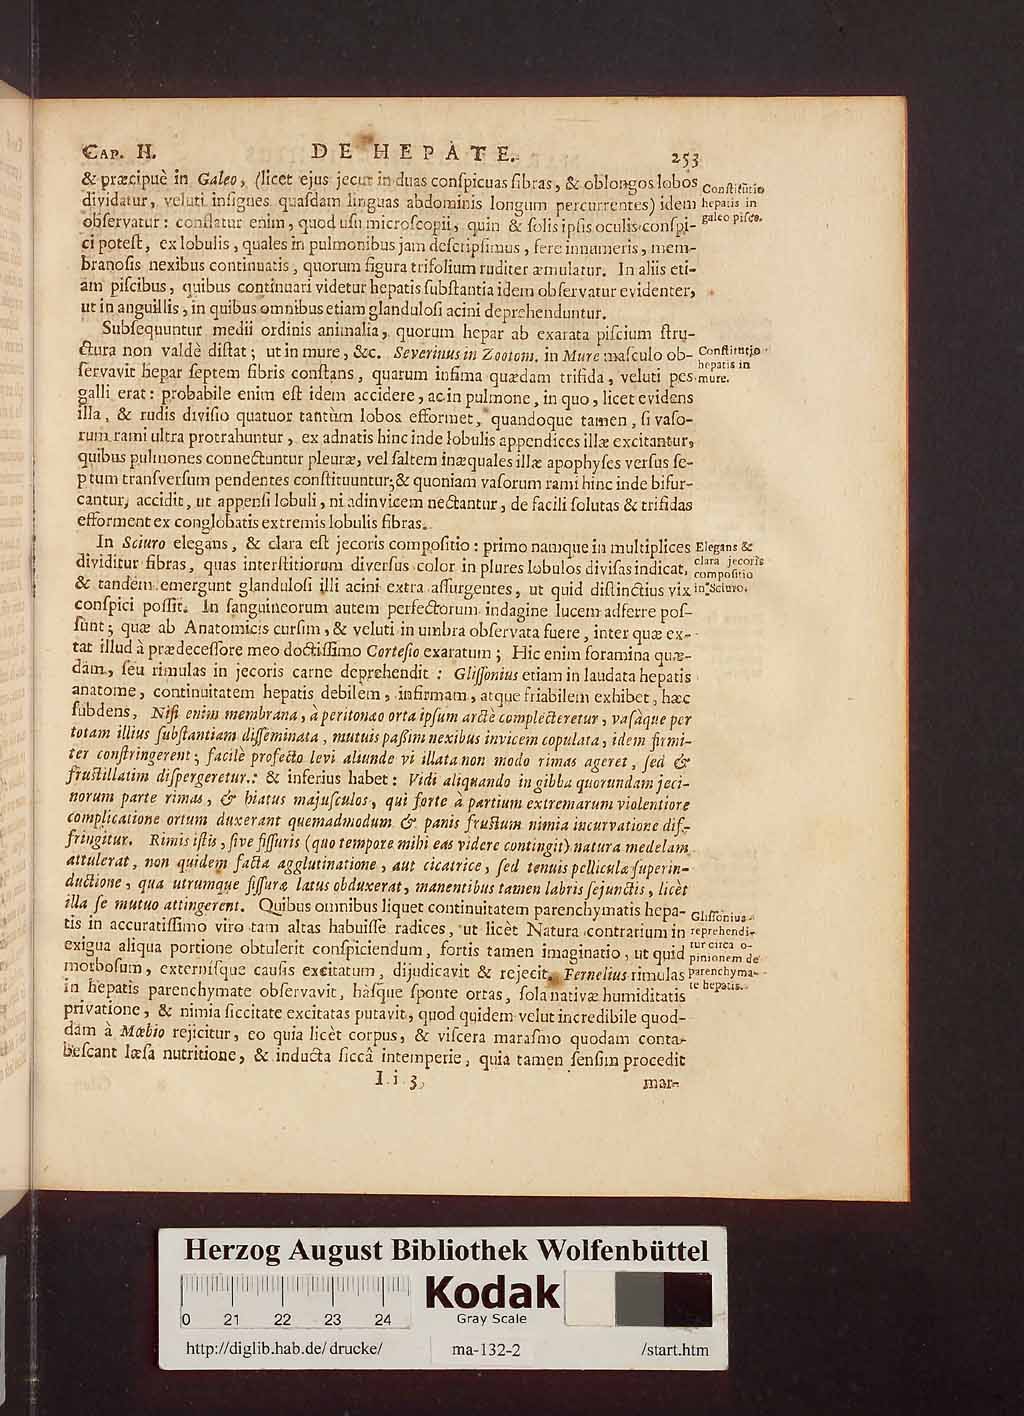 CAP. II. DE HEPATE. 253
& præcipuè in Galeo, (licet ejus jecur in duas conſpicuas fibras, & oblongos lobos
dividatur, veluti inſignes quaſdam linguas abdominis longum percurrentes) idem
obſervatur: conflatur enim, quod uſu microſcopii, quin & ſolis ipſis oculis conſpi-
ci poteſt, ex lobulis, quales in pulmonibus jam deſcripſimus, fere innumeris, mem-
branoſis nexibus continuatis, quorum figura trifolium ruditer æmulatur. In aliis eti-
am piſcibus, quibus continuari videtur hepatis ſubſtantia idem obſervatur evidenter,
ut in anguillis, in quibus omnibus etiam glanduloſi acini deprehenduntur.
Constitutio
hepatis in
galeo piſce.
Subſequuntur medii ordinis animalia, quorum hepar ab exarata piſcium ſtru-
ctura non valdè diſtat; ut in mure, &c. Severinus in Zootom. in Mure maſculo ob-
ſervavit hepar ſeptem fibris conſtans, quarum infima quædam trifida, veluti pes
galli erat: probabile enim eſt idem accidere, ac in pulmone, in quo, licet evidens
illa, & rudis diviſio quatuor tantùm lobos efformet, quandoque tamen, ſi vaſo-
rum rami ultra protrahuntur, ex adnatis hinc inde lobulis appendices illæ excitantur,
quibus pulmones connectuntur pleuræ, vel ſaltem inæquales illæ apophyſes verſus ſe-
ptum tranſverſum pendentes conſtituuntur; & quoniam vaſorum rami hinc inde bifur-
cantur, accidit, ut appenſi lobuli, ni adinvicem nectantur, de facili ſolutas & trifidas
efforment ex conglobatis extremis lobulis fibras.
Conſtitutio
hepatis in
mure.
In Sciuro elegans, & clara eſt jecoris compoſitio: primo namque in multiplices
dividitur fibras, quas interſtitiorum diverſus color in plures lobulos diviſas indicat,
& tandem emergunt glanduloſi illi acini extra aſſurgentes, ut quid diſtinctius vix
conſpici poſſit. In ſanguineorum autem perfectorum indagine lucem adferre poſ-
ſunt; quæ ab Anatomicis curſim, & veluti in umbra obſervata fuere, inter quæ ex-
tat illud à prædeceſſore meo doctiſſimo Corteſio exaratum; Hic enim foramina quæ-
dam, ſeu rimulas in jecoris carne deprehendit: Gliſſonius etiam in laudata hepatis
anatome, continuitatem hepatis debilem, infirmam, atque friabilem exhibet, hæc
ſubdens, Niſi enim membrana, à peritonæo orta ipſum arctè complecteretur, vaſàque per
totam illius ſubſtantiam diſſeminata, mutuis paßim nexibus invicem copulata, idem firmi-
ter conſtringerent; facilè profecto levi aliunde vi illata non modo rimas ageret, ſed &
fruſtillatim diſpergeretur.: & inferius habet: Vidi aliquando in gibba quorundam jeci-
norum parte rimas, & hiatus majuſculos, qui forte à partium extremarum violentiore
complicatione ortum duxerant quemadmodum & panis fruſtum nimia incurvatione dif-
fringitur. Rimis iſtis, ſive fiſſuris (quo tempore mihi eas videre contingit) natura medelam
attulerat, non quidem facta agglutinatione, aut cicatrice, ſed tenuis pelliculæ ſuperin-
ductione, qua utrumque fiſſuræ latus obduxerat, manentibus tamen labris ſejunctis, licèt
illa ſe mutuo attingerent. Quibus omnibus liquet continuitatem parenchymatis hepa-
tis in accuratiſſimo viro tam altas habuiſſe radices, ut licèt Natura contrarium in
exigua aliqua portione obtulerit conſpiciendum, fortis tamen imaginatio, ut quid
morboſum, externiſque cauſis excitatum, dijudicavit & rejecit. Fernelius rimulas
in hepatis parenchymate obſervavit, hàſque ſponte ortas, ſola nativæ humiditatis
privatione, & nimia ſiccitate excitatas putavit, quod quidem velut incredibile quod-
dam à Mœbio rejicitur, eo quia licèt corpus, & viſcera maraſmo quodam conta-
beſcant læſa nutritione, & inducta ſiccâ intemperie, quia tamen ſenſim procedit
Elegans &
clara jecoris
compoſitio
in Sciuro.
Gliſſonius
reprehendi-
tur circa o-
pinionem de
parenchyma-
te hepatis.
I i 3 mar-
Herzog August Bibliothek Wolfenbüttel
0 21 22 23 24
Kodak
Gray Scale
http://diglib.hab.de/drucke/ ma-132-2 /start.htm